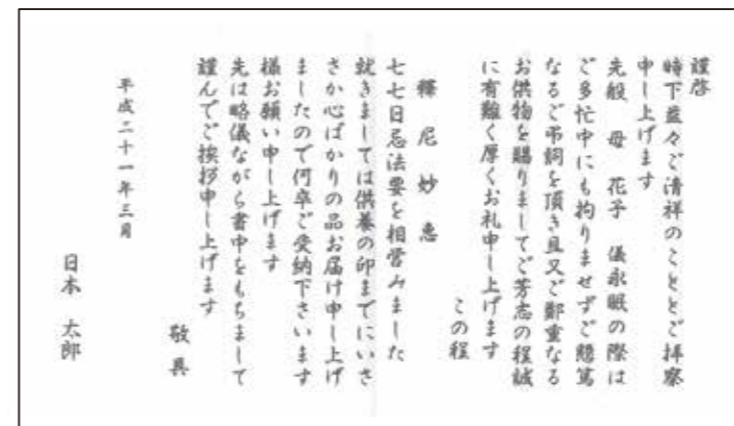 謹啓
時下益々ご清祥のこととご拝察
申し上げます
先般 母 花子 儀永眠の際は
ご多忙中にも拘りませずご懇篤
なるご弔詞を頂き且又ご鄭重なる
お供物を賜りましてご芳志の程誠
に有難く厚くお礼申し上げます
この程
釋尼妙恵
七七日忌法要を相営みました
就きましては供養の印までにいさ
さか心ばかりの品お届け申し上げ
ましたので何卒ご受納下さいます
様お願い申し上げます
先は略儀ながら書中をもちまして
謹んでご挨拶申し上げます
敬具
平成二十一年三月
日本 太郎